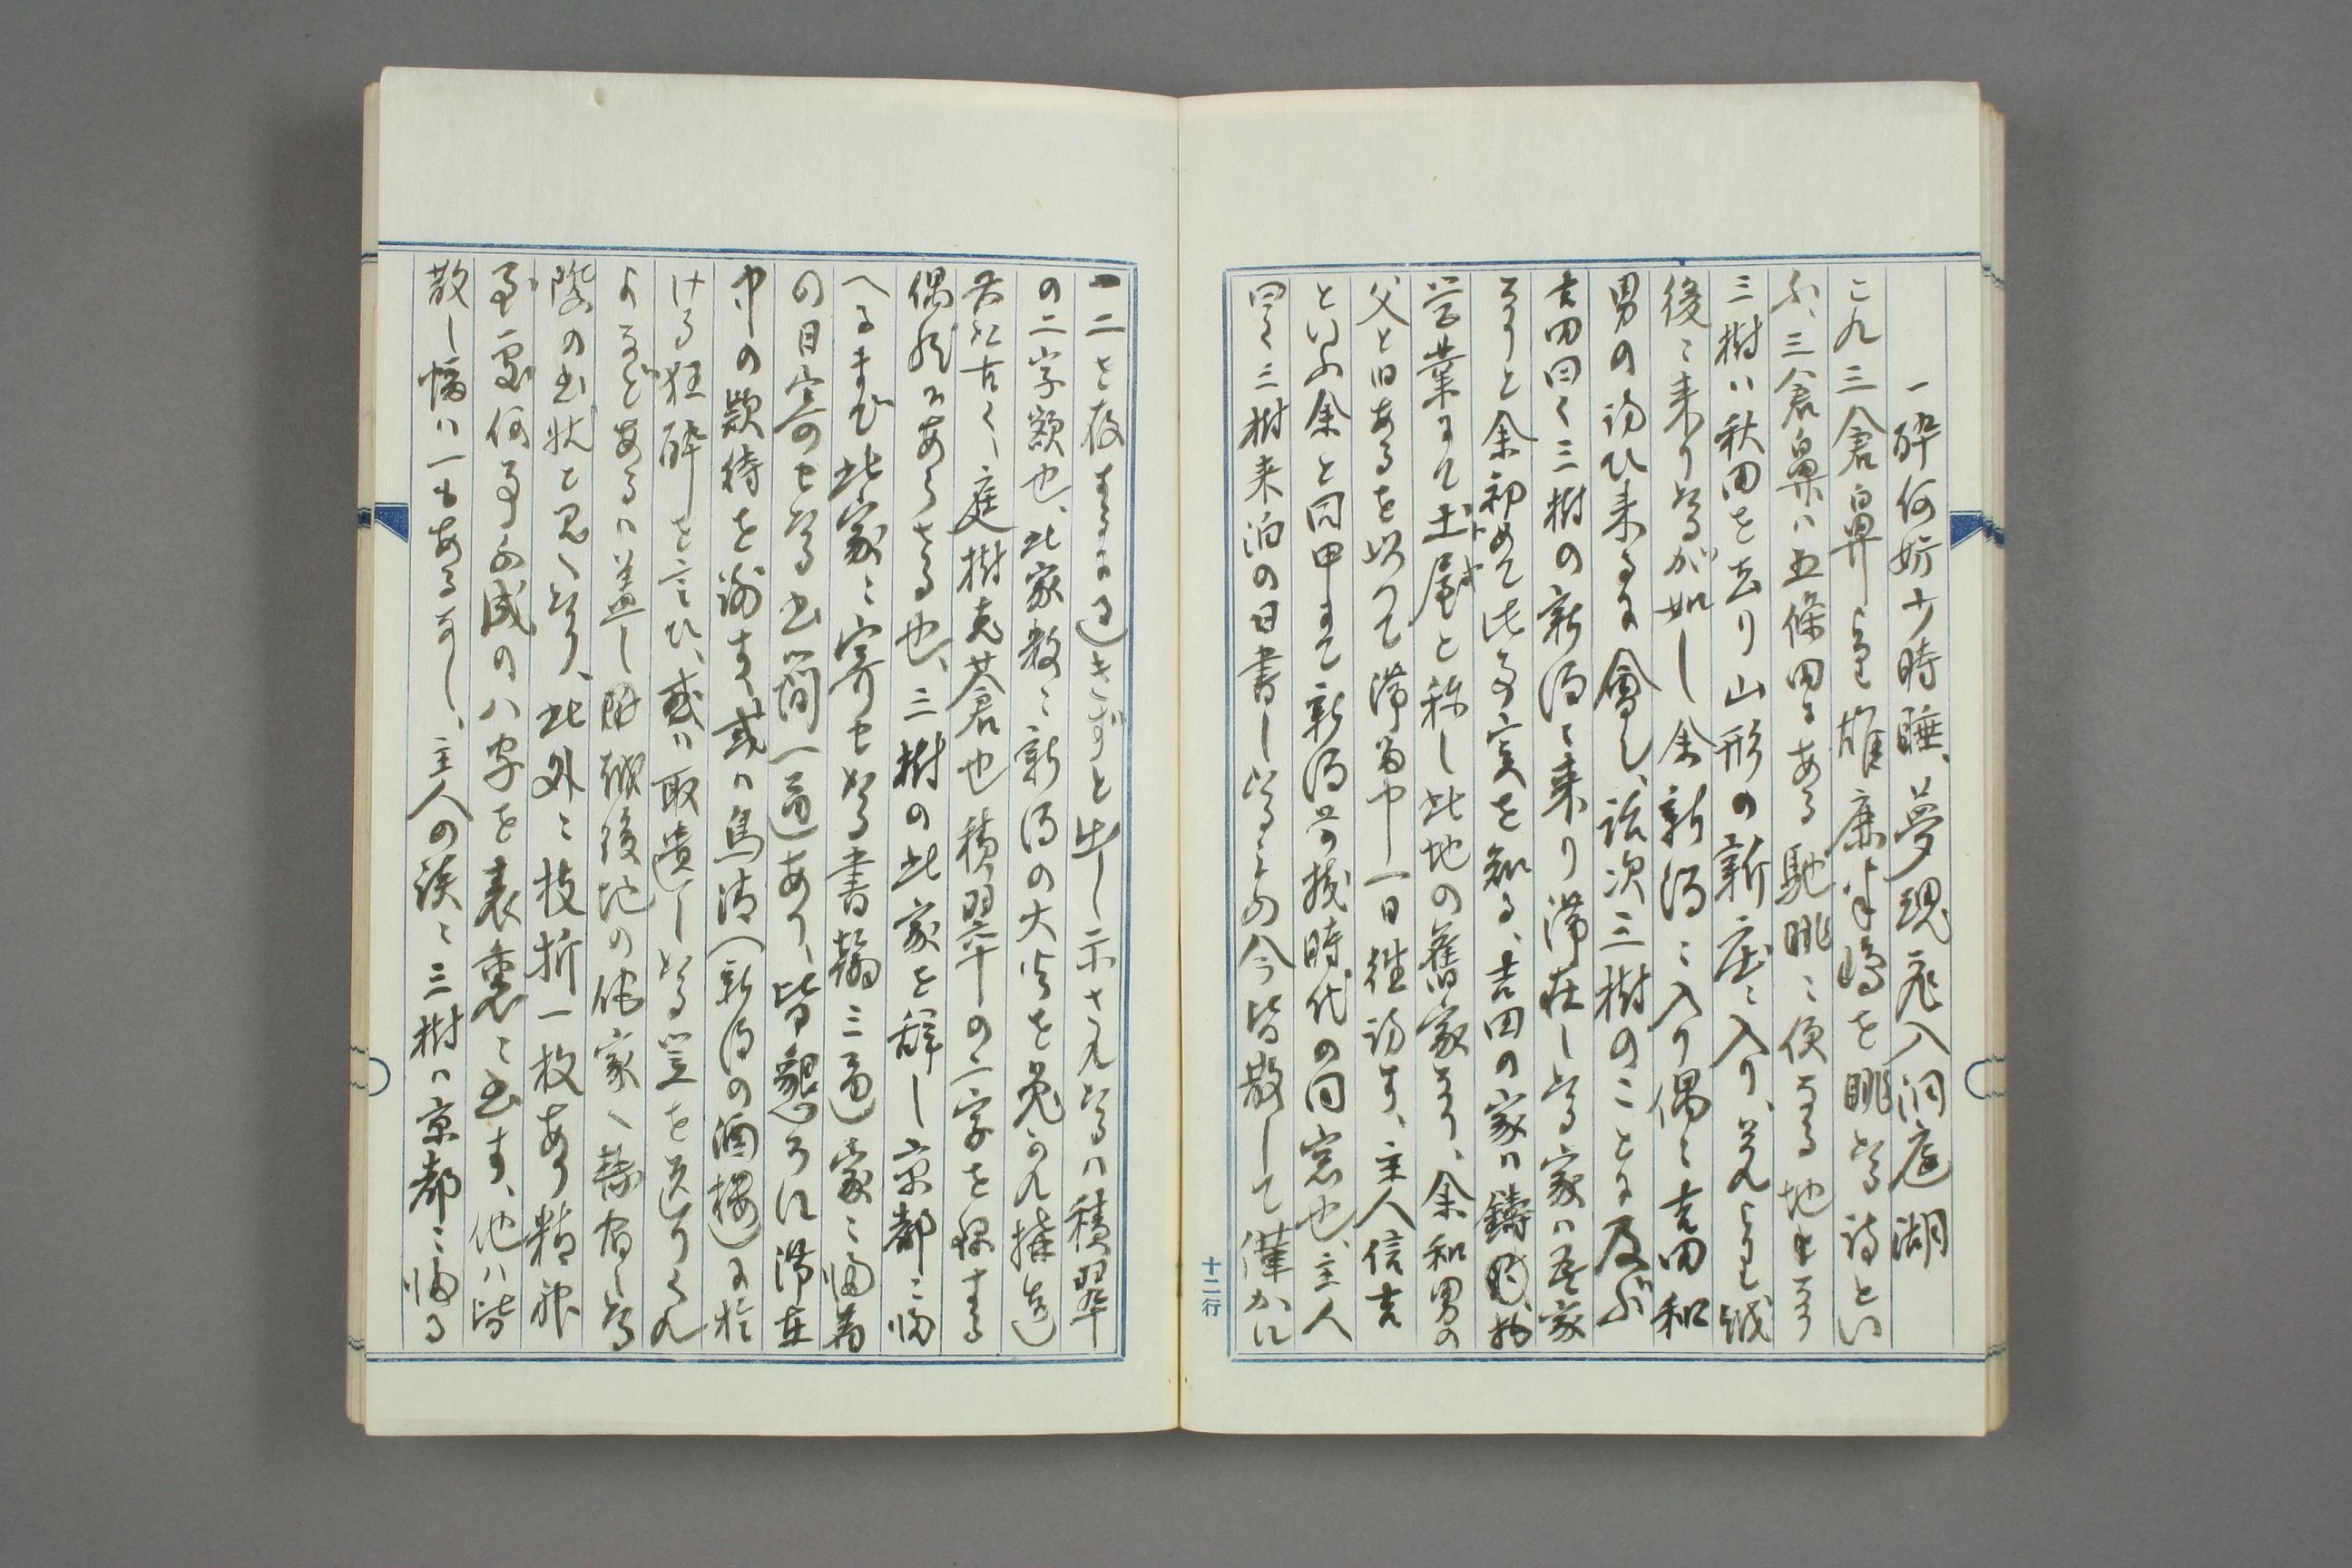 一酔何妨少時睡、夢魂飛入洞庭湖
これ三倉鼻より雄鹿半嶋を眺たる詩とい
ふ、三倉鼻は五條田にある馳眺に便なる地となり
三樹ハ秋田を去り山形の新庄ニ入り、それより越
後ニ来りたるが如し余新潟ニ入り偶ニ吉田和
男の訪ひ来るに會し、話次三樹のことに及ぶ
吉田曰く三樹の新潟ニ来り滞在したる家ハ吾家
なりと余初めて此事実を知る、吉田の家ハ鑄物
営業にて土屋と称し此地の舊家なり、余和男の
父と旧あるを以つて滞留中一日往訪す、主人信吉
といふ余と同甲にて新潟学校時代の同窓也、主人
曰く三樹来泊の日書したるもの今皆散して僅かに
一二を存するに過ぎずと出し示されたるハ積翠
の二字額也、此家数ニ新潟の大火を免かれ構造
古く、庭樹亦蒼也積翠の二字を得する
偶然にあらざる也、三樹の此家を辞し京都ニ帰
へるまで此家ニ寄せたる書翰三通家ニ帰着
の日寄のせたる書簡一通あり、皆懇ろに滞在
中の款待を謝す、或ハ鳥清（新潟の酒楼）に於
ける狂酔を言ひ、或ハ取遺したる笠を送りくれ
よなどあるハ蓋し附越後地の他家へ替宿したる
際の書状と思へたり、此外ニ枝折一枚あり精神
至處何事不成の八字を表裏ニ書す、他ハ皆
散し幅ハ一もあるなし、主人の談ニ三樹ハ京都ニ帰る
十二行